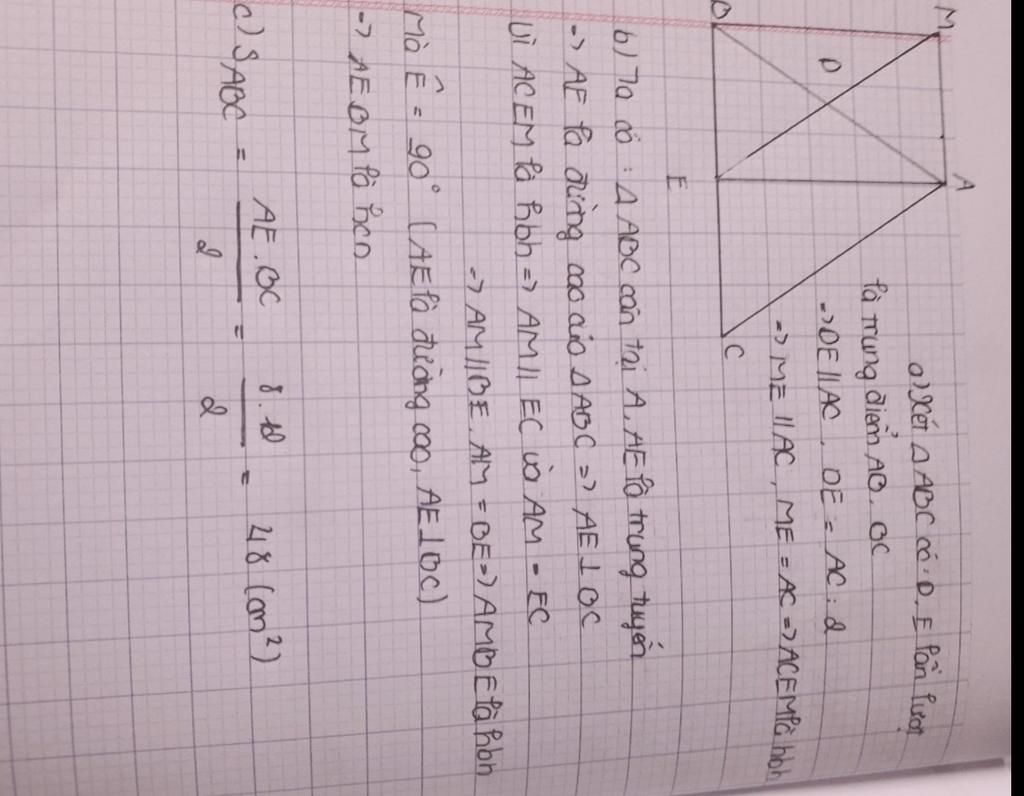 M
A
B
D
E
C
a) Xét Δ ABC có: D, E lần lượt
là trung điểm AB, BC
=> DE // AC, DE = AC : 2
=> ME // AC, ME = AC => ACEM là hbh
b) Ta có: Δ ABC cân tại A, AE là trung tuyến
=> AE là đường cao của Δ ABC => AE ⊥ BC
Vì ACEM là hbh => AM // EC và AM = EC
=> AM // BE, AM = BE => AMBE là hbh
Mà Ê = 90° (AE là đường cao, AE ⊥ BC)
=> AEBM là hcn
c) SABC = AE.BC / 2 = 8.12 / 2 = 48 (cm²)